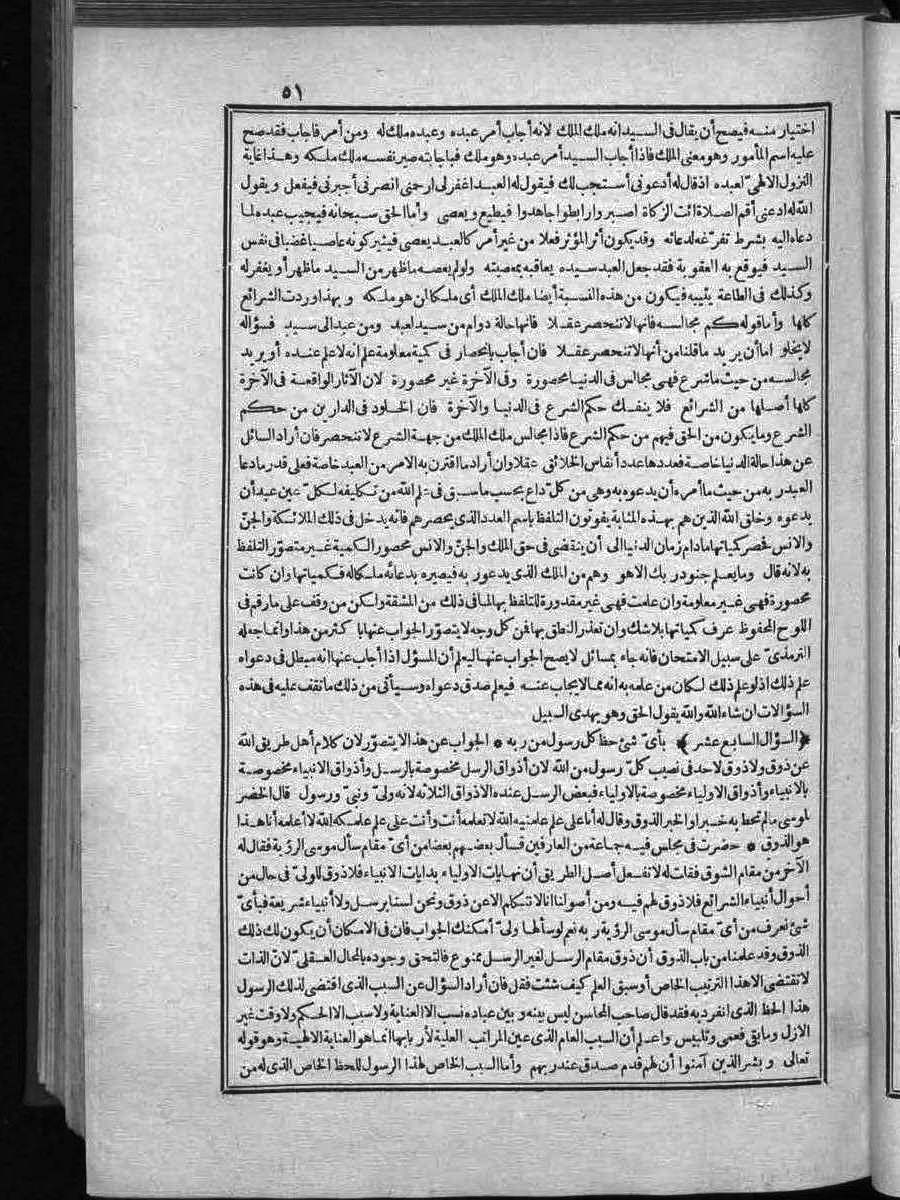 ٥١
اختيار منه فيصح أن يقال فى السيد انه ملك الملك لانه أجاب أمر عبده وعبده ملك له ومن أمر فاجاب فقد صح
عليه اسم المأمور وهو معنى الملك فاذا أجاب السيد أمر عبده وهو ملك فباجابته صير نفسه ملك ملكه وهذا غاية
النزول الالهىّ لعبده اذ قال له أدعونى أستجب لك فيقول له العبد اغفر لى ارحمنى انصرنى أجبرنى فيفعل ويقول
الله له ادعنى أقم الصلاة ائت الزكاة اصبروا رابطوا جاهدوا فيطيع ويعصى وأما الحق سبحانه فيجيب عبده لما
دعاه اليه بشرط تفرّغه لدعائه وقد يكون أثر المؤثر فعلا من غير أمر كالعبد يعصى فيثير كونه عاصيا غضبا فى نفس
السيد فيوقع به العقوبة فقد جعل العبد سيده يعاقبه بمعصيته ولو لم يعصه ما ظهر من السيد ما ظهر أو يغفر له
وكذلك فى الطاعة يثيبه فيكون من هذه النسبة أيضا ملك الملك أى ملكا لمن هو ملكه وبهذا وردت الشرائع
كلها وأما قوله كم مجالسه فانها لا تنحصر عقلا فانها حالة دوام من سيد لعبد ومن عبد الى سيد فسؤاله
لا يخلو اما أن يريد ما قلنا من أنها لا تنحصر عقلا فان أجاب بانحصار فى كمية معلومة علم انه لا علم عنده أو يريد
مجالسه من حيث ما شرع فهى مجالس فى الدنيا محصورة وفى الآخرة غير محصورة لان الآثار الواقعة فى الآخرة
كلها أصلها من الشرائع فلا ينفك حكم الشرع فى الدنيا والآخرة فان الخلود فى الدارين من حكم
الشرع وما يكون من الحق فيهم من حكم الشرع فاذا مجالس ملك الملك من جهة الشرع لا تنحصر فان أراد السائل
عن هذا حالة الدنيا خاصة فعددها عدد أنفاس الخلائق عقلا وان أراد ما اقترن به الامر من العبد خاصة فعلى قدر ما دعا
العبد ربه من حيث ما أمره أن يدعوه به وهى من كلّ داع بحسب ما سبق فى علم الله من تكليفه لكلّ عين عبد أن
يدعوه وخلق الله الذين هم بهذه المثابة يفوتون التلفظ باسم العدد الذى يحصرهم فانه يدخل فى ذلك الملائكة والجنّ
والانس فحصر كمياتها ما دام زمان الدنيا الى أن ينقضى فى حق الملك والجنّ والانس محصور الكمية غير متصوّر التلفظ
به لانه قال وما يعلم جنود ربك الا هو وهم من الملك الذى يدعو ربه فيصيره بدعائه ملكا له فكمياتها وان كانت
محصورة فهى غير معلومة وان علمت فهى غير مقدورة للتلفظ بها لما فى ذلك من المشقة ولكن من وقف على ما رقم فى
اللوح المحفوظ عرف كمياتها بلا شك وان تعذر النطق بها فمن كل وجه لا يتصوّر الجواب عنها باكثر من هذا وانما جعله
الترمذىّ على سبيل الامتحان فانه جاء بمسائل لا يصح الجواب عنها ليعلم أن المسؤل اذا أجاب عنها انه مبطل فى دعواه
علم ذلك اذ لو علم ذلك لكان من علمه به انه مما لا يجاب عنه فيعلم صدق دعواه وسيأتى من ذلك ما تقف عليه فى هذه
السؤالات ان شاء الله والله يقول الحق وهو يهدى السبيل
﴿السؤال السابع عشر﴾ بأىّ شئ حظ كل رسول من ربه * الجواب عن هذا لا يتصوّر لان كلام أهل طريق الله
عن ذوق ولا ذوق لاحد فى نصيب كلّ رسول من الله لان أذواق الرسل مخصوصة بالرسل وأذواق الانبياء مخصوصة
بالانبياء وأذواق الاولياء مخصوصة بالاولياء فبعض الرسل عنده الاذواق الثلاثة لانه ولىّ ونبىّ ورسول قال الخضر
لموسى ما لم تحط به خبرا والخبر الذوق وقال له أنا على علم علمنيه الله لا تعلمه أنت وأنت على علم علمكه الله لا أعلمه أنا هذا
هو الذوق * حضرت فى مجلس فيه جماعة من العارفين فسأل بعضهم بعضا من أىّ مقام سأل موسى الرؤية فقال له
الآخر من مقام الشوق فقلت له لا تفعل أصل الطريق أن نهايات الاولياء بدايات الانبياء فلا ذوق للولىّ فى حال من
أحوال أنبياء الشرائع فلا ذوق لهم فيه ومن أصولنا انا لا نتكلم الا عن ذوق ونحن لسنا برسل ولا أنبياء شريعة فبأىّ
شئ نعرف من أىّ مقام سأل موسى الرؤية ربه نعم لو سألها ولىّ أمكنك الجواب فان فى الامكان أن يكون لك ذلك
الذوق وقد علمنا من باب الذوق أن ذوق مقام الرسل لغير الرسل ممنوع فالتحق وجوده بالمحال العقلىّ لانّ الذات
لا تقتضى الا هذا الترتيب الخاص أو سبق العلم كيف شئت فقل فان أراد السؤال عن السبب الذى اقتضى لذلك الرسول
هذا الحظ الذى انفرد به فقد قال صاحب المحاسن ليس بينه وبين عباده نسب الا العناية ولا سبب الا الحكم ولا وقت غير
الازل وما بقى فعمى وتلبيس واعلم أن السبب العام الذى عين المراتب العلية لأربابها انما هو العناية الالهية وهو قوله
تعالى وبشر الذين آمنوا أن لهم قدم صدق عند ربهم وأما السبب الخاص لهذا الرسول للحظ الخاص الذى له من